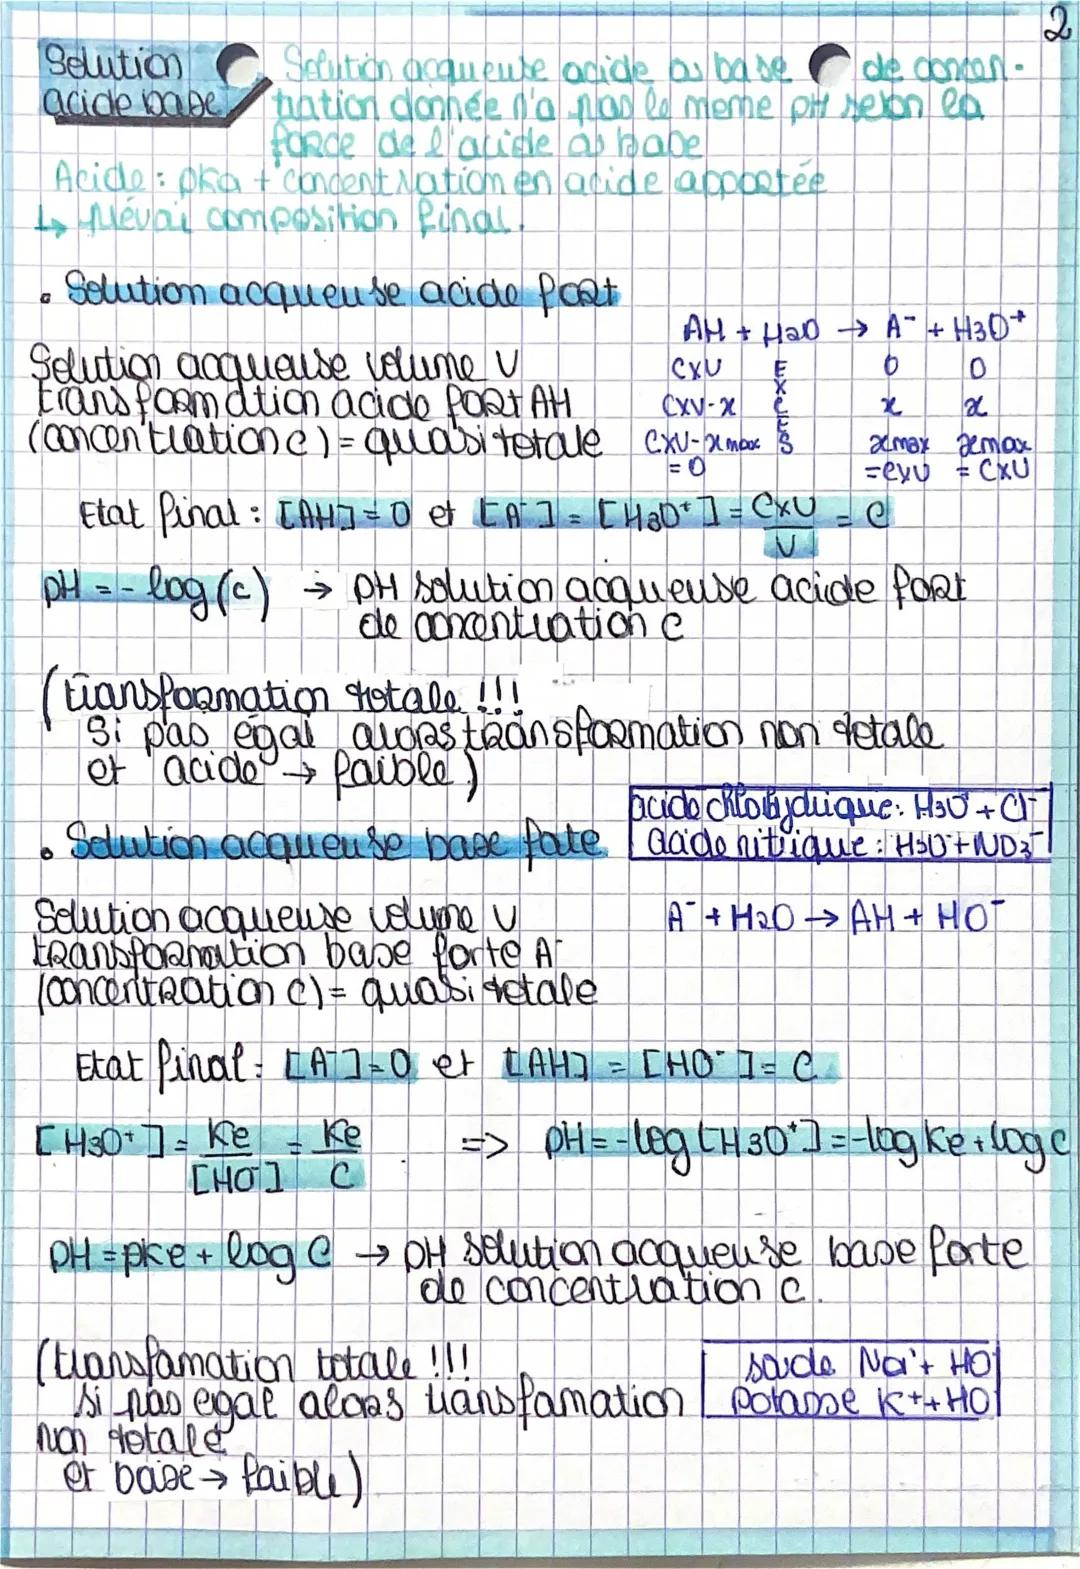 2
Solution
acide base
Solution acqueuse acide ou base de concen-
tration donnée n'a pas le meme pH selon la
force de l'acide ou base
Acide : pKa + concentration en acide apportée
↳ prévoir composition final.
• Solution acqueuse acide fort
AH + H2O → A⁻ + H3O⁺
Solution acqueuse volume V
transformation acide fort AH
(concentration c) = quasi totale
CxV EXCÈS 0 0
CxV-x x x
CxV-xmax xmax xmax
=0 =cxV = CxV
Etat final : [AH] = 0 et [A⁻] = [H3O⁺] = CxV/V = C
pH = - log (c) → pH solution acqueuse acide fort
de concentration c
(transformation totale !!!
Si pas égal alors transformation non totale
et acide → faible)
acide chlorhydrique : H3O⁺ + Cl⁻
acide nitrique : H3O⁺ + NO3⁻
• Solution acqueuse base forte
Solution acqueuse volume V
transformation base forte A⁻
(concentration c) = quasi totale
A⁻ + H2O → AH + HO⁻
Etat final : [A⁻] = 0 et [AH] = [HO⁻] = C
[H3O⁺] = Ke/[HO⁻] = Ke/C => pH = -log [H3O⁺] = -log Ke + log c
pH = pke + log C → pH solution acqueuse base forte
de concentration c.
(transformation totale !!!
si pas egal alors transformation
non totale
et base → faible)
soude Na⁺ + HO⁻
Potasse K⁺ + HO⁻